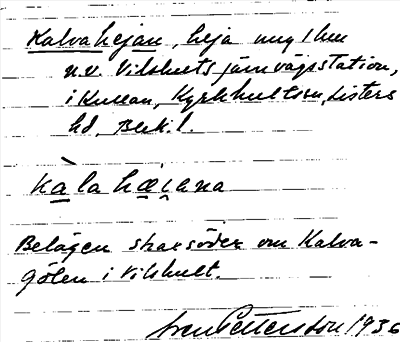 Kalvahejan, heja ung 1 km
n.v. Vilshults järnvägsstation,
Kyrkhults sn, Listers
hd, Blek. l.
kàlahæi̭ana
Belägen strax söder om Kalva-
gölen i Vilshult.
Sven Pettersson 1936